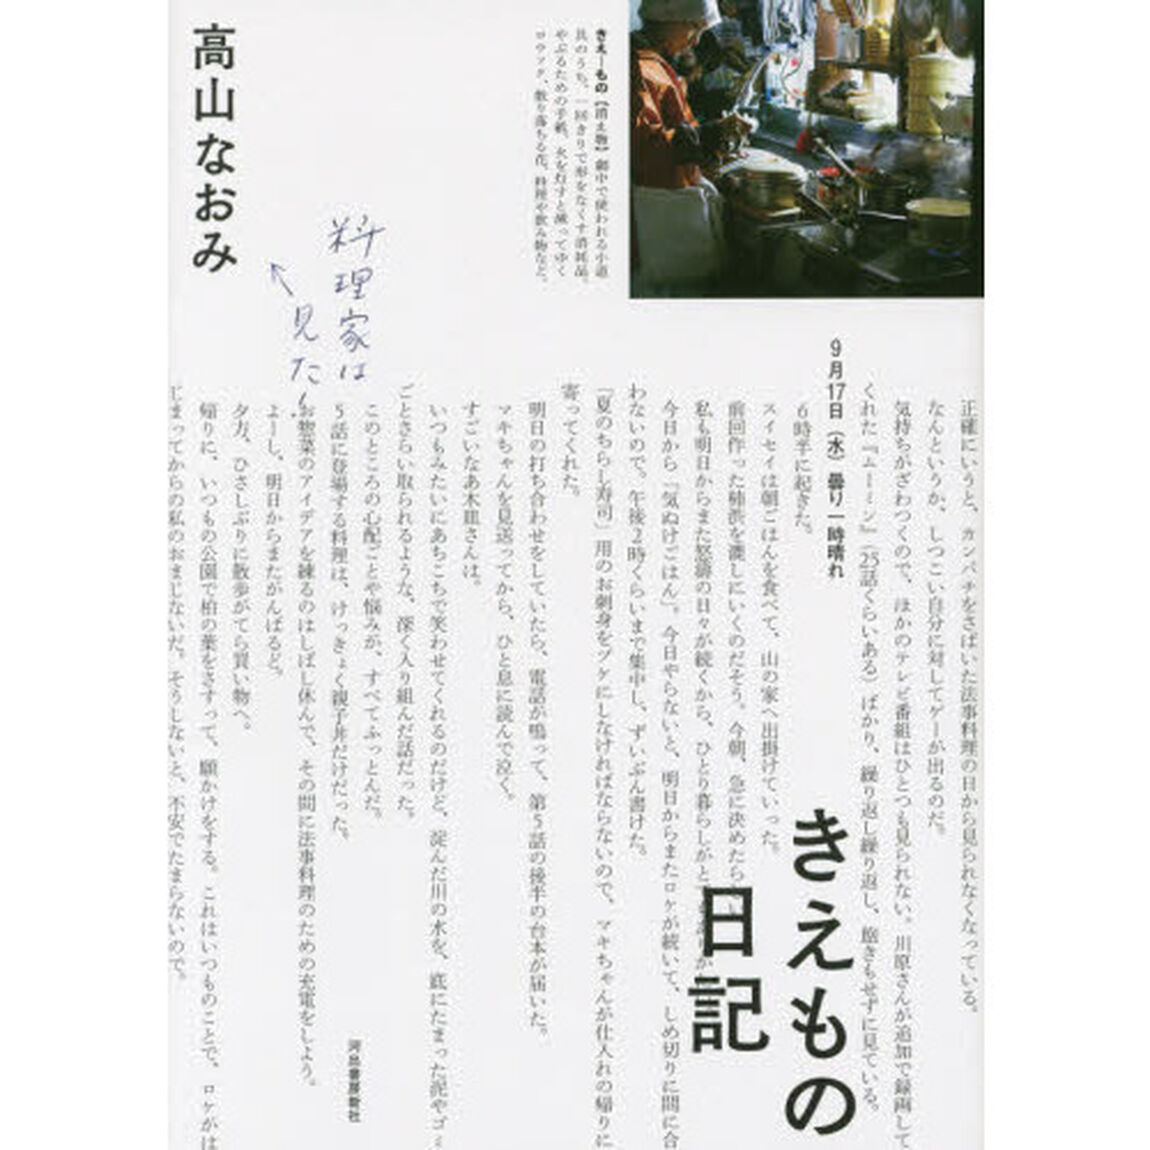 きえーもの【消え物】劇中で使われる小道
具のうち、一回きりで形をなくす消耗品。
やぶるための手紙、火を灯すと減ってゆく
ロウソク、散り落ちる花、料理や飲み物など。
高山なおみ
料理家は
見た!
きえもの
日記
正確にいうと、カンパチをさばいた法事料理の日から見られなくなっている。
なんというか、しつこい自分に対してゲーが出るのだ。
気持ちがざわつくので、ほかのテレビ番組はひとつも見られない。川原さんが追加で録画して
くれた『ムーミン』(25話ぐらいある)ばかり、繰り返し繰り返し、飽きもせずに見ている。
9月17日(水)曇り一時晴れ
6時半に起きた。
スイセイは朝ごはんを食べて、山の家へ出掛けていった。
前回作った柿渋を漉しにいくのだそう。今朝、急に決めたらしい
私も明日からまた怒濤の日々が続くから、ひとり暮らしがと
今日から『気ぬけごはん』。今日やらないと、明日からまたロケが続いて、しめ切りに間に合
わないので。午後2時くらいまで集中し、ずいぶん書けた。
「夏のちらし寿司」用のお刺身をヅケにしなければならないので、マキちゃんが仕入れの帰りに
寄ってくれた。
明日の打ち合わせをしていたら、電話が鳴って、第5話の後半の台本が届いた。
マキちゃんを見送ってから、ひと息に読んで泣く。
すごいなあ木皿さんは。
いつもみたいにあちこちで笑わせてくれるのだけど、淀んだ川の水を、底にたまった泥やゴミ
ごとさらい取られるような、深く入り組んだ話だった。
このところの心配ごとや悩みが、すべてふっとんだ。
5話に登場する料理は、けっきょく親子丼だけだった。
お惣菜のアイデアを練るのはしばし休んで、その間に法事料理のための充電をしよう。
よーし、明日からまたがんばるど。
夕方、ひさしぶりに散歩がてら買い物へ。
帰りに、いつもの公園で柏の葉をさすって、願かけをする。これはいつものことで、ロケがは
じまってからの私のおまじないだ。そうしないと、不安でたまらないので。
河出書房新社